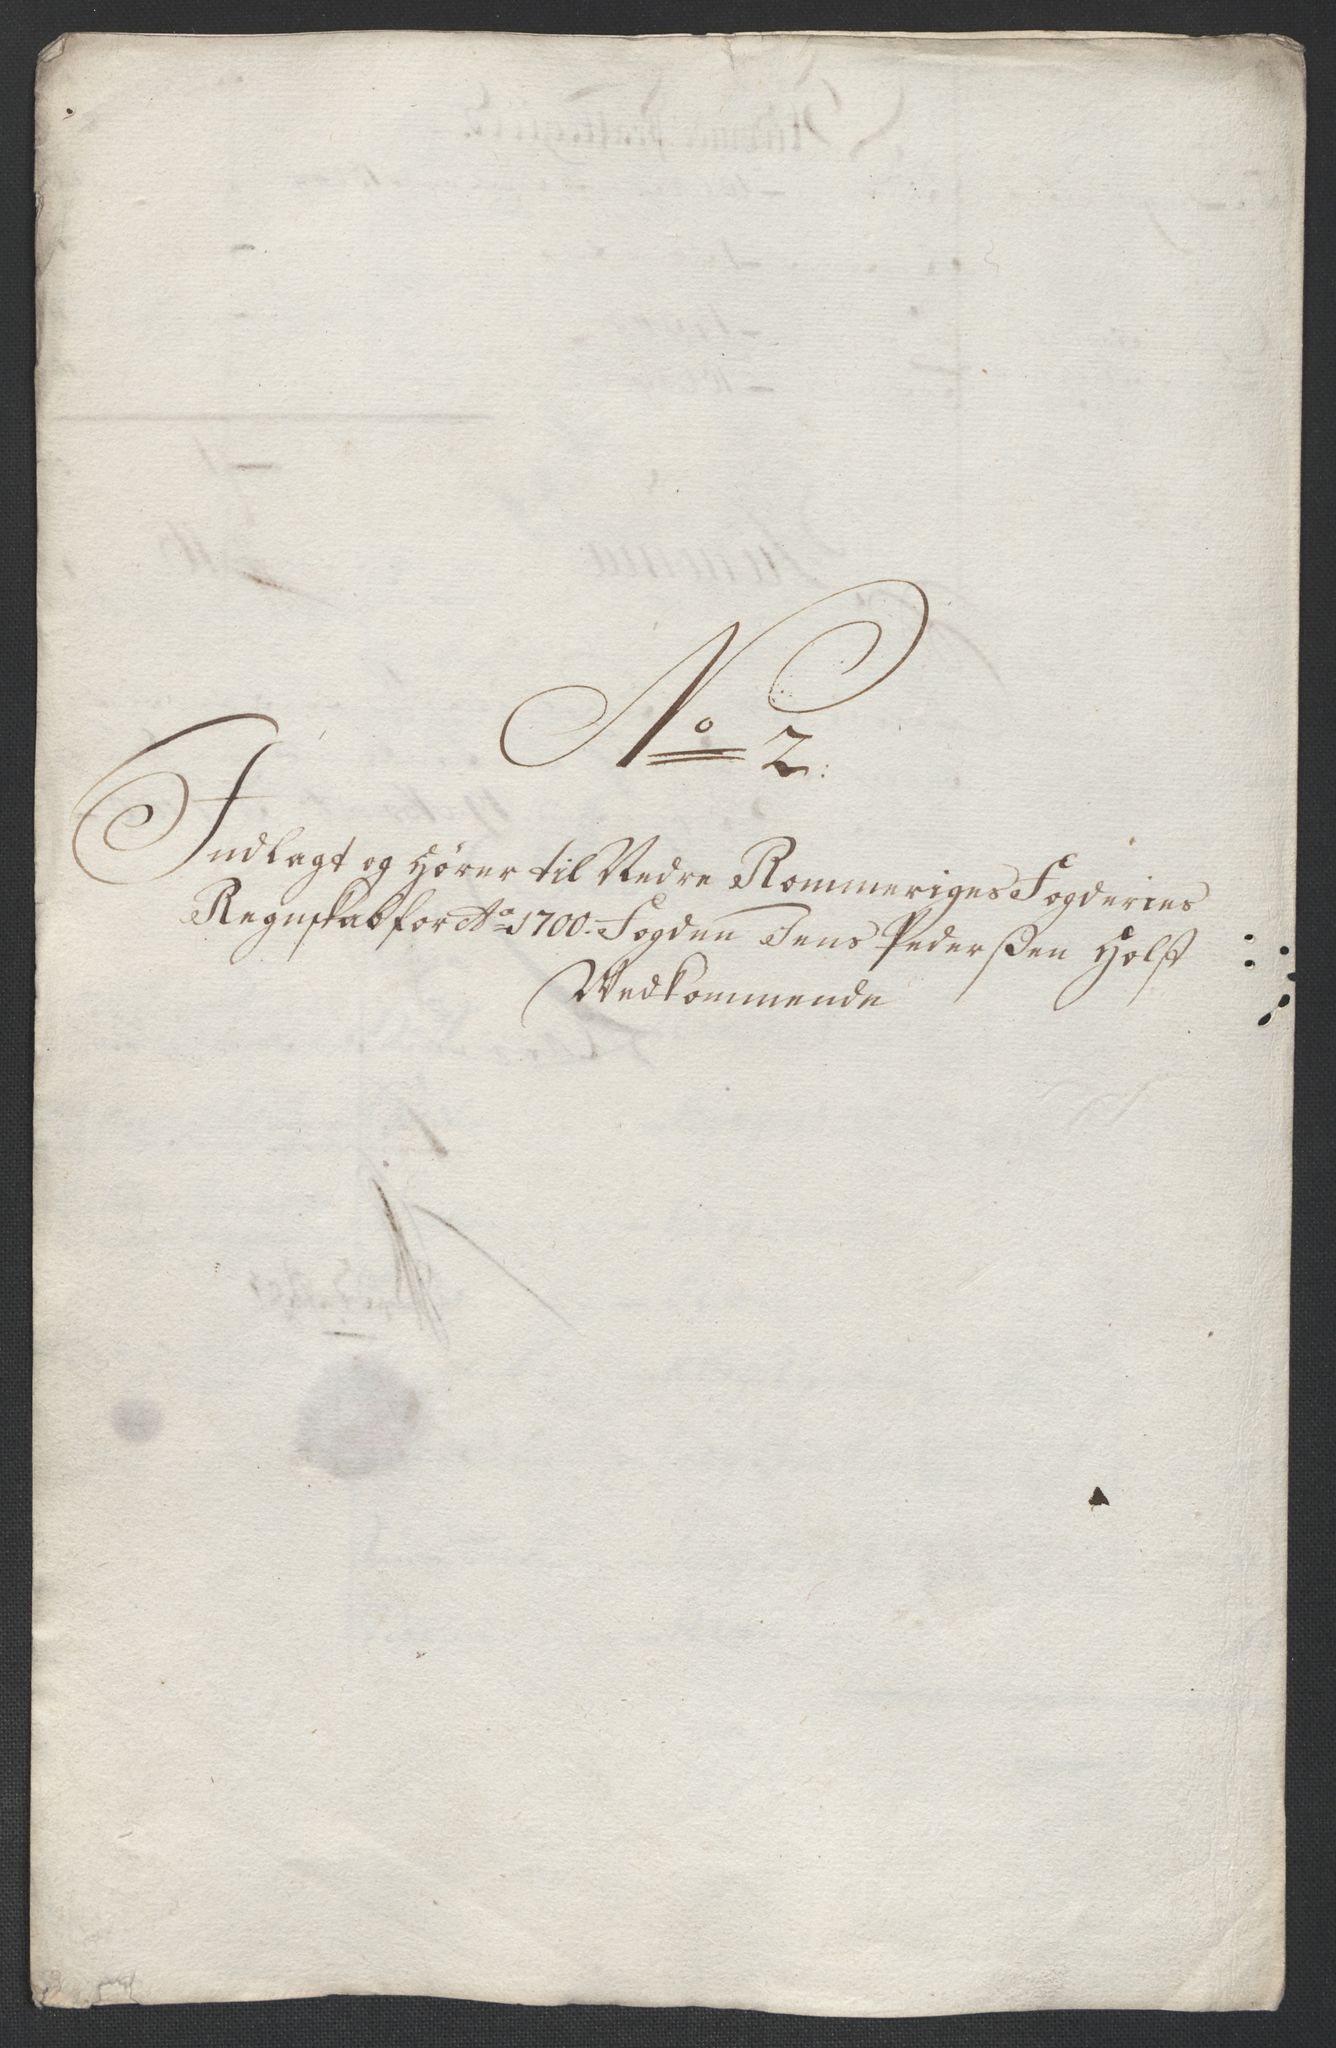 No 2:
Indlagt og Hører til Nedre Rommeriges Fogderies
Regnskab for Ao 1700. Fogden Jens Pederßen Holst
Vedkommende